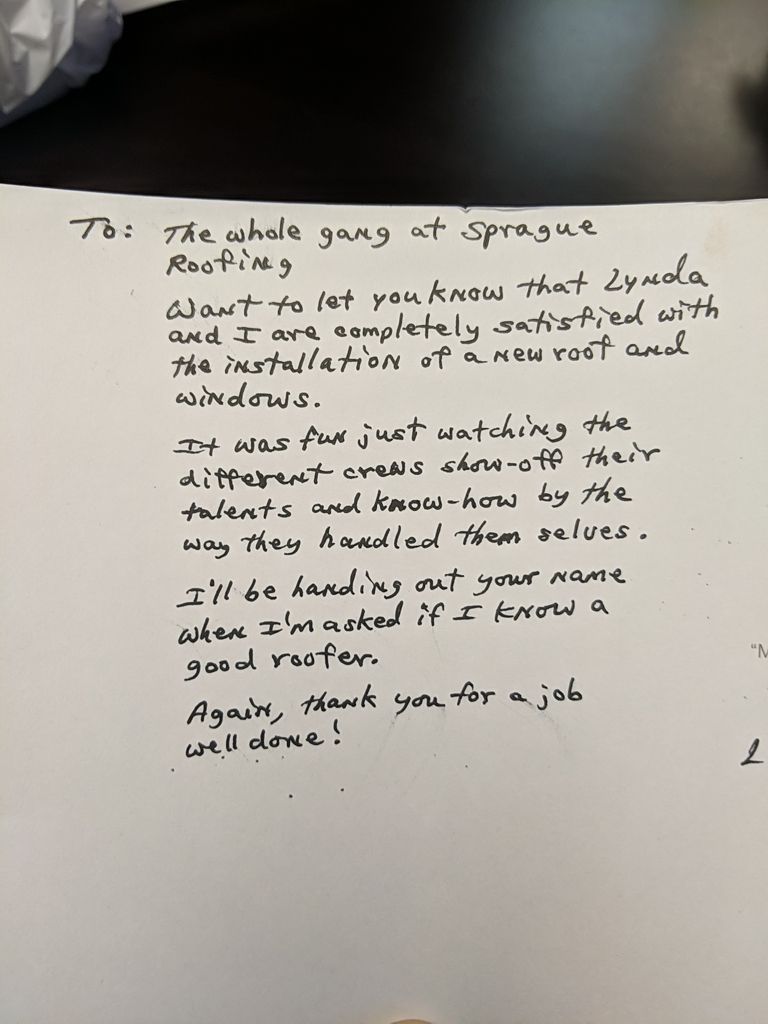 To: The whole gang at Sprague
Roofing
Want to let you know that Lynda
and I are completely satisfied with
the installation of a new roof and
windows.
It was fun just watching the
different crews show-off their
talents and know-how by the
way they handled them selves.
I'll be handing out your name
when I'm asked if I know a
good roofer.
Again, thank you for a job
well done!
"M